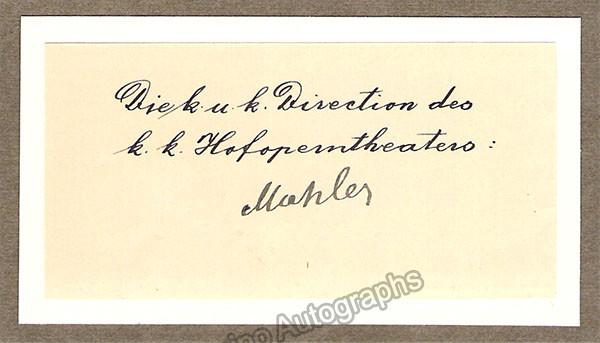 Die k. u. k. Direction des
k. k. Hofoperntheaters:
Mahler
Autographs